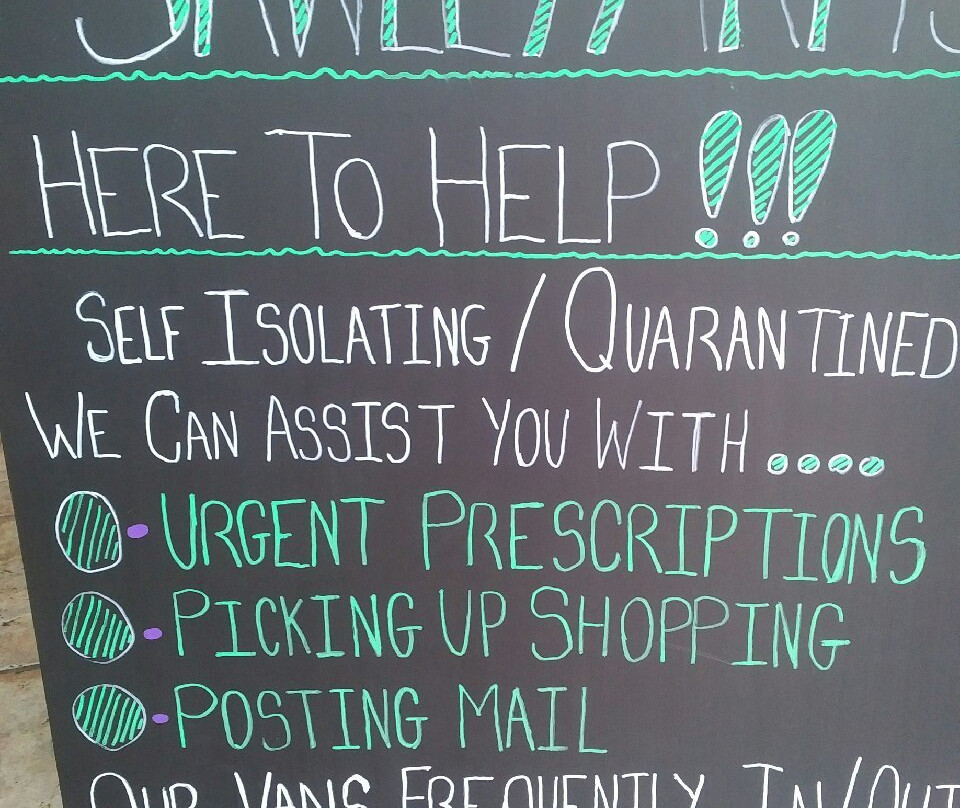 HERE TO HELP !!!
SELF ISOLATING / QUARANTINED
WE CAN ASSIST YOU WITH ....
URGENT PRESCRIPTIONS
PICKING UP SHOPPING
POSTING MAIL
OUR VANS FREQUENTLY IN/OUT